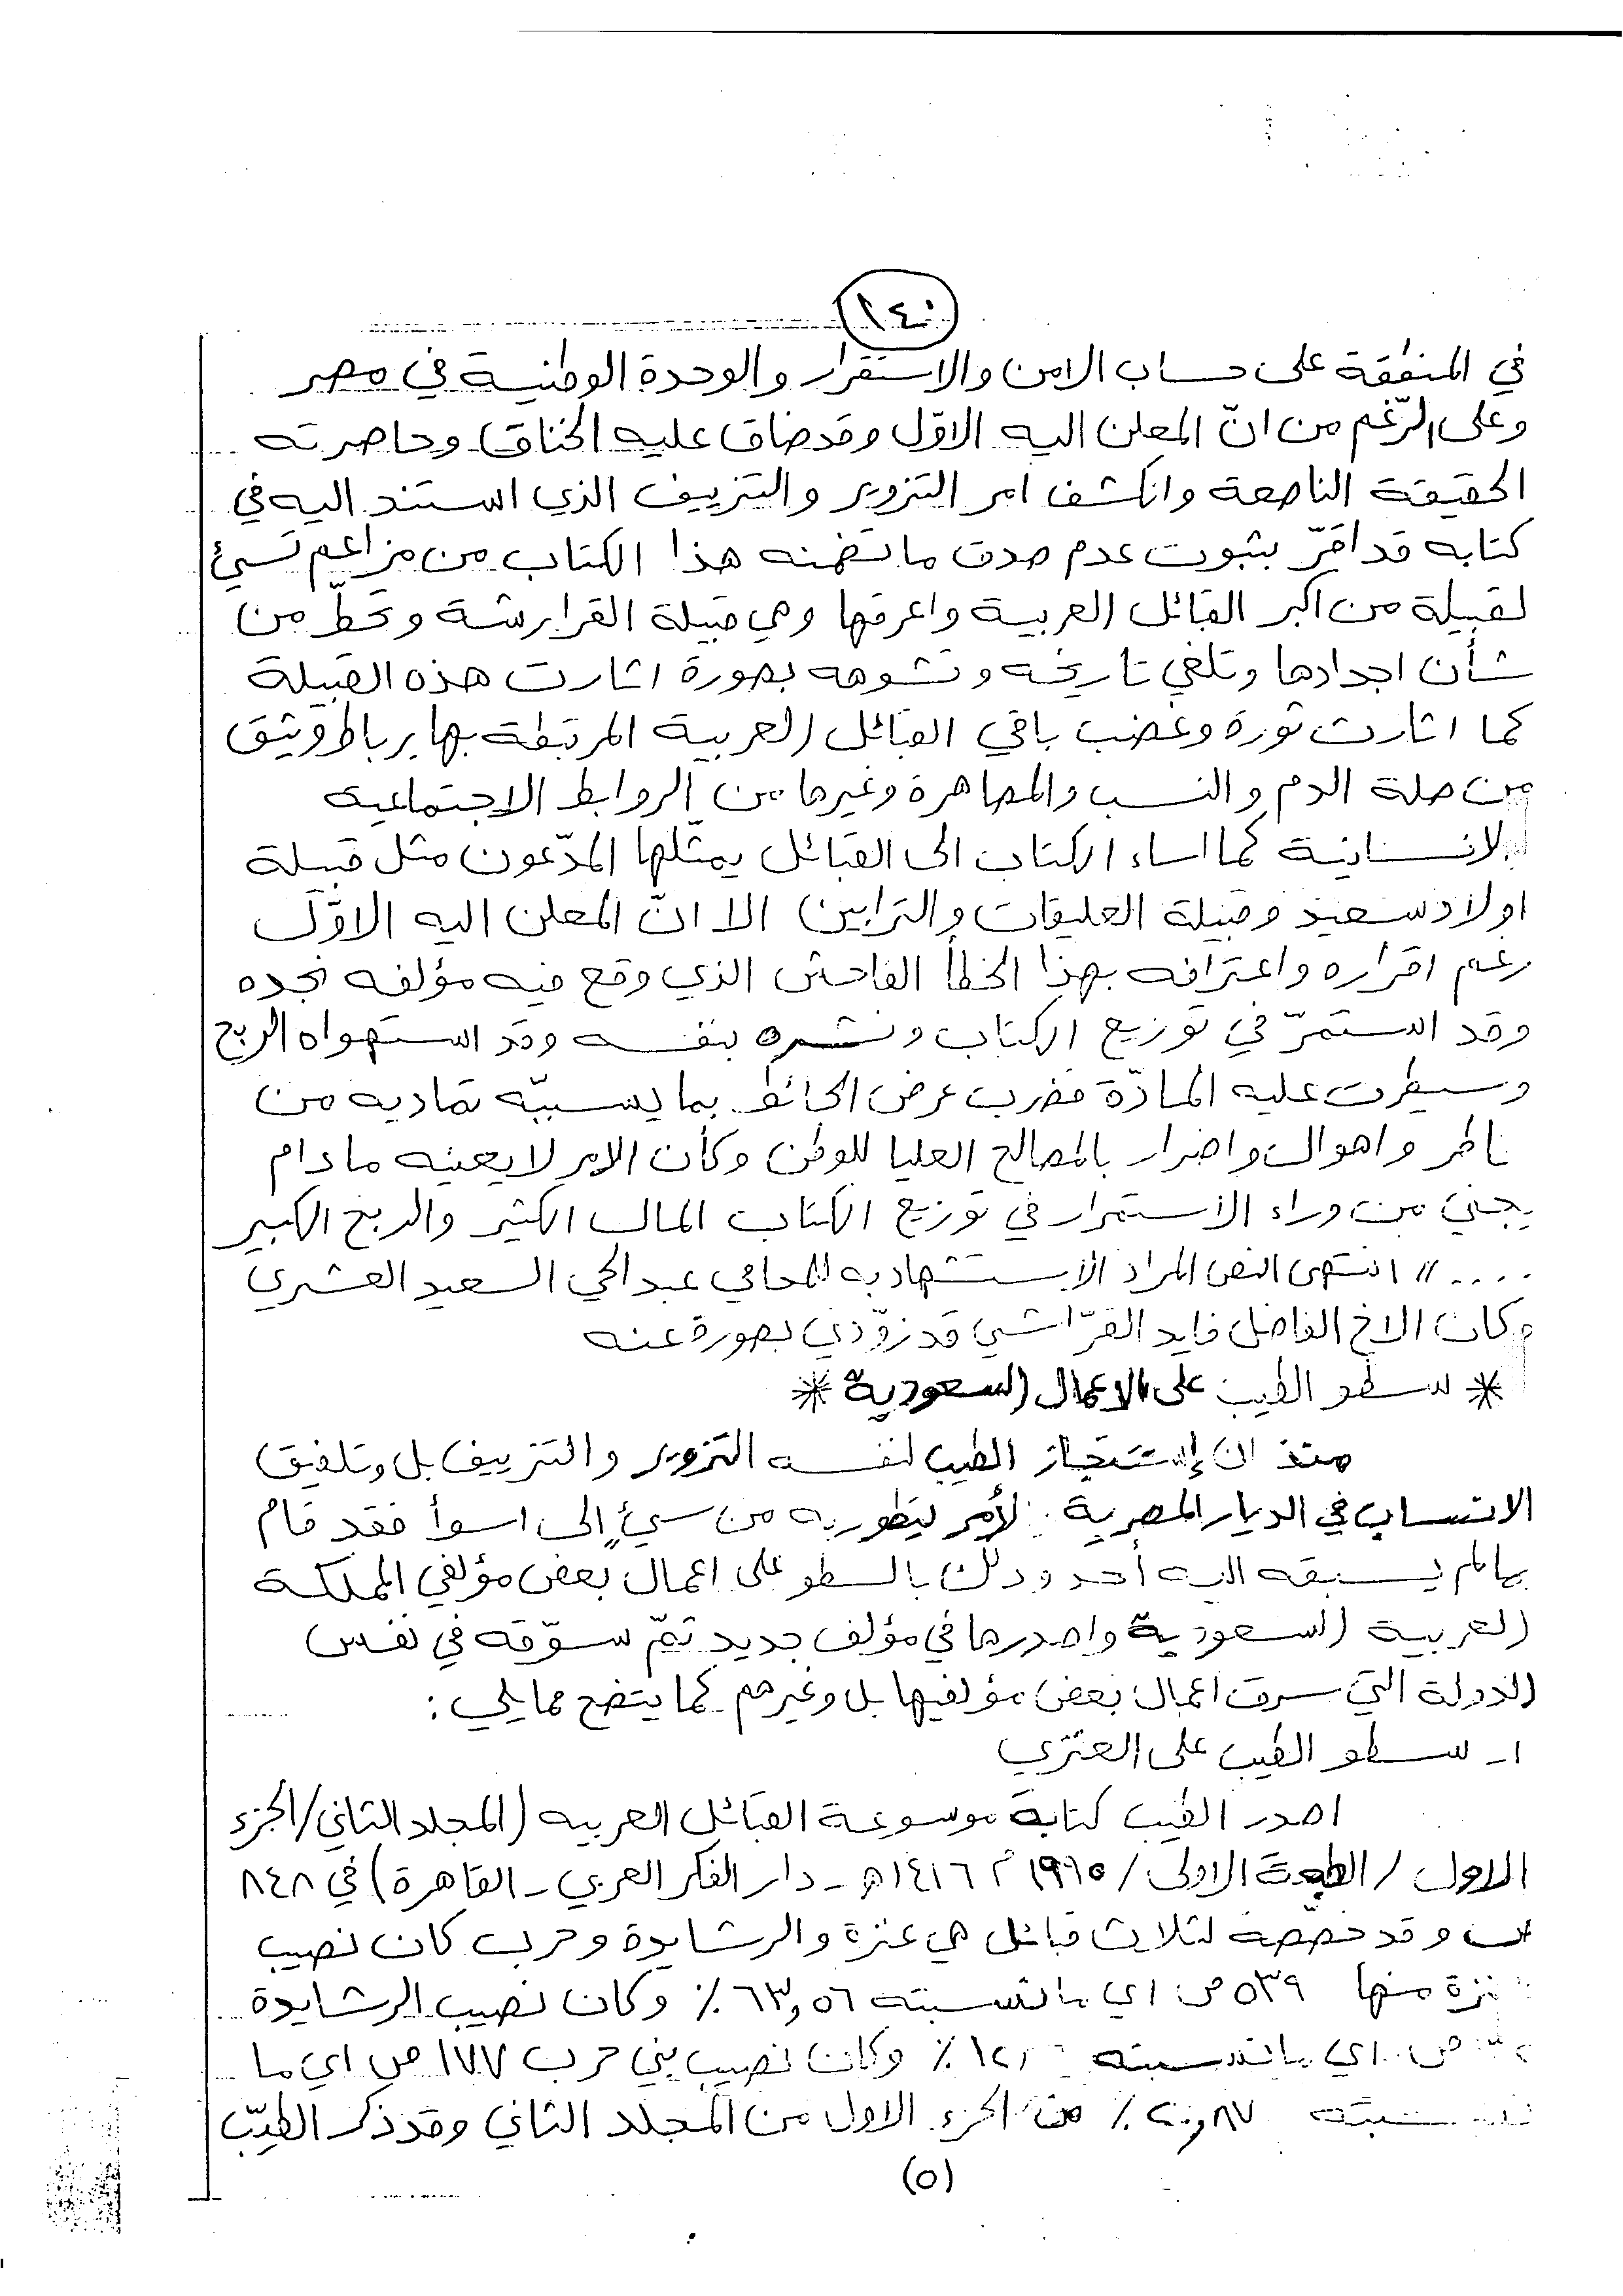 ١٤٠
في المنطقة على حساب الامن والاستقرار والوحدة الوطنية في مصر
وعلى الرّغم من انّ المعلن اليه الاوّل وقد ضاق عليه الخناق وحاصرته
الحقيقة الناصعة وانكشف امر التزوير والتزييف الذي استند اليه في
كتابه قد اقرّ بثبوت عدم صدق ما تضمنه هذا الكتاب من مزاعم تسيئ
لقبيلة من اكبر القبائل العربية واعرقها وهي قبيلة القرارشة وتحطّ من
شأن اجدادها وتلغي تاريخه وتشوهه بصورة اثارت هذه القبيلة
كما اثارت ثورة وغضب باقي القبائل العربية المرتبطة بها برباط وثيق
من صلة الدم والنسب والمصاهرة وغيرها من الروابط الاجتماعية
الانسانية كما اساء الكتاب الى القبائل يمثلها المدّعون مثل قبيلة
اولاد سعيد وقبيلة العليقات والترابين الا انّ المعلن اليه الاوّل
رغم اقراره واعترافه بهذا الخطأ الفاحش الذي وقع فيه مؤلفه نجده
وقد استمرّ في توزيع الكتاب ونشره بنفسه وقد استهواه الربح
وسيطرت عليه المادّة فضرب عرض الحائط بما يسببّه تماديه من
ناطر واهوال واضرار بالمصالح العليا للوطن وكأن الامر لا يعنيه مادام
يجني من وراء الاستمرار في توزيع الكتاب المال الكثير والربح الكبير
....〃 انتهى النص المراد الاستشهاد به للمحامي عبدالحي السعيد العشري
وكان الاخ الفاضل فايد القرّاشي قد زوّدني بصورة عنه
* سطو الطيب على الاعمال السعودية *
منذ ان إستجاز الطيب لنفسه التزوير والتزييف بل وتلفيق
الانساب في الديار المصرية لأمر ليطور به من سيئٍ إلى اسوأ فقد قام
بمالم يسبقه اليه أحد وذلك بالسطو على اعمال بعض مؤلفي المملكة
العربية السعودية واصدرها في مؤلف جديد تمّ سوّقه في نفس
الدولة التي سرق اعمال بعض مؤلفيها بل وغيرهم كما يتضح مما يلي :
١- سطو الطيب على العنزي
اصدر الطيب كتابه موسوعة القبائل العربيه (المجلد الثاني/الجزء
الاول / الطبعة الاولى / ١٩٩٥م ١٤١٦هـ - دار الفكر العربي - القاهرة) في ٨٤٨
وقد خصّصه لثلاث قبائل هي عنزة والرشايدة وحرب كان نصيب
عنزة منها ٥٣٩ ص اي ما نسبته ٦٣,٥٦ % وكان نصيب الرشايدة
ص اي ما نسبته % وكان نصيب بني حرب ١٧٧ ص اي ما
نسبته ٢٠,٨٧ % من الجزء الاول من المجلد الثاني وقد ذكر الطيّب
(٥)